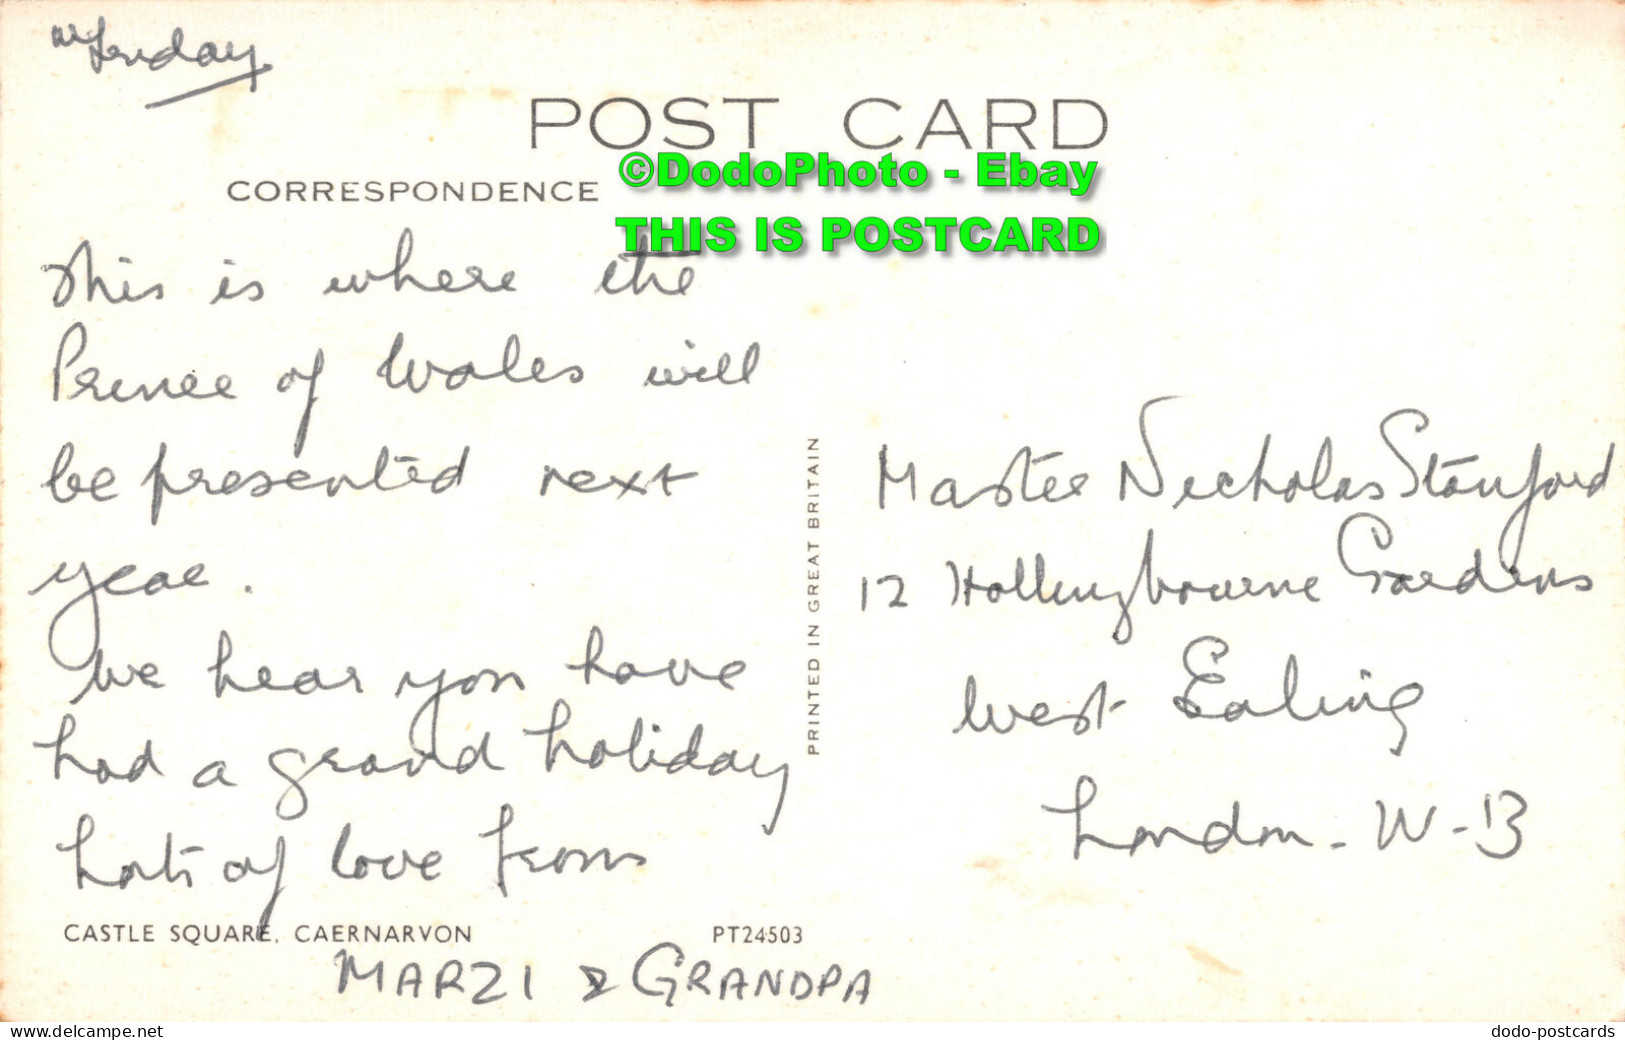 POST CARD
©DodoPhoto - Ebay
THIS IS POSTCARD
CORRESPONDENCE
This is where the
Prince of Wales will
be presented next
year.
We hear you have
had a grand holiday
Lots of love from
MARZI & GRANDPA
CASTLE SQUARE, CAERNARVON
PT24503
PRINTED IN GREAT BRITAIN
Master Nicholas Stanford
12 Hollingbourne Gardens
West Ealing
London - W-13
www.delcampe.net
dodo-postcards